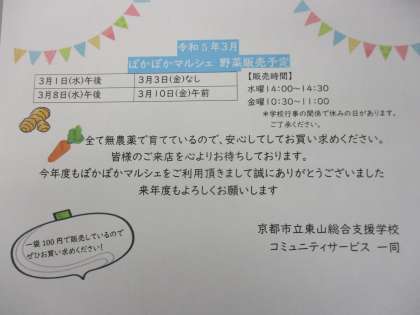 令和5年3月
ぽかぽかマルシェ 野菜販売予定
3月1日(水)午後 3月3日(金)なし
3月8日(水)午後 3月10日(金)午前
【販売時間】
水曜14:00~14:30
金曜10:30~11:00
*学校行事の関係で休みの日があります。
ご了承ください。
全て無農薬で育てているので、安心してしてお買い求めください。
皆様のご来店を心よりお待ちしております。
今年度もぽかぽかマルシェをご利用頂きまして誠にありがとうございました
来年度もよろしくお願いします
一袋100円で販売しているので
ぜひお買い求めください!
京都市立東山総合支援学校
コミュニティサービス 一同